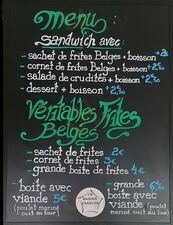 Menu
Sandwich avec:
- sachet de frites Belges + boisson
- cornet de frites Belges + boisson
- salade de crudités + boisson
- dessert + boisson
Véritables Frites
Belges
- sachet de frites 2€
- cornet de frites 3€
- grande boite de frites 4€
- boite avec
viande 5€
(poulet mariné
cuit au four)
- grande
boite avec
viande
(poulet
mariné cuit au four)
MANGER
FRANÇAIS